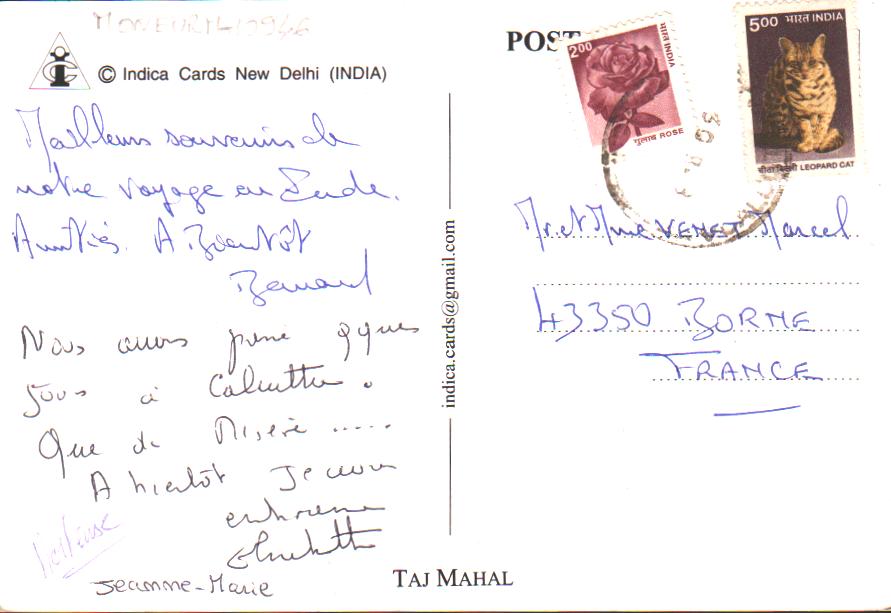 © Indica Cards New Delhi (INDIA)
Meilleurs souvenirs de
notre voyage en Inde.
Amitiés. A Bientôt
Bernard
Nous avons passé qques
jours à Calcutta.
Que de Misère .....
A bientôt Je vous
embrasse
Jeanne-Marie
TAJ MAHAL
indica.cards@gmail.com
POST
2.00 भारत INDIA
गुलाब ROSE
5.00 भारत INDIA
LEOPARD CAT
Mr et Mme VENET Marcel
43350 BORNE
FRANCE